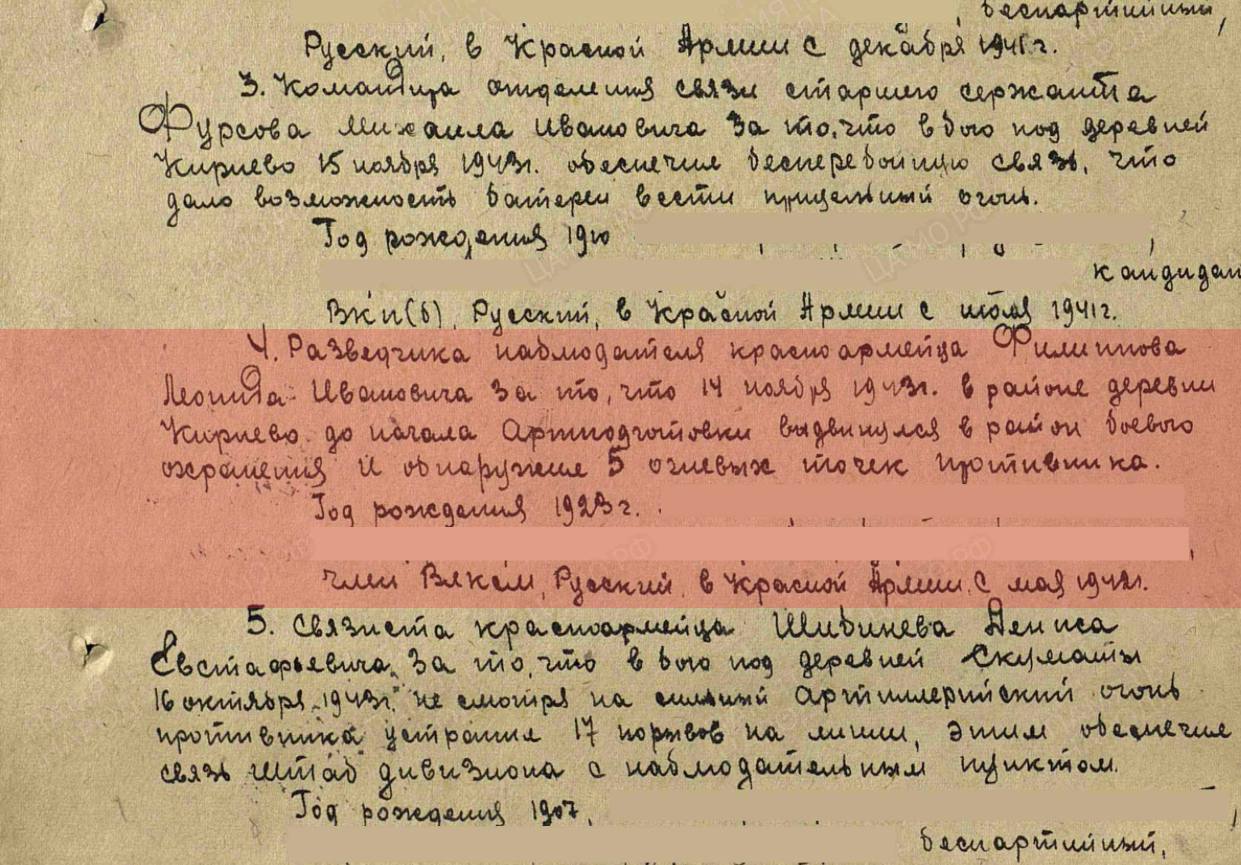 беспартийный,
Русский, в Красной Армии с декабря 1941г.
3. Командира отделения связи старшего сержанта
Фурсова Михаила Ивановича за то, что в бою под деревней
Кириево 15 ноября 1943г. обеспечил бесперебойную связь, что
дало возможность батареи вести прицельный огонь.
Год рождения 1910
кандидат
ВКП(б), Русский, в Красной Армии с июля 1941г.
4. Разведчика наблюдателя красноармейца Филиппова
Леонида Ивановича за то, что 14 ноября 1943г. в районе деревни
Кириево до начала Артподготовки выдвинулся в район боевого
охранения и обнаружил 5 огневых точек противника.
Год рождения 1923г.
член ВЛКСМ, Русский, в Красной Армии с мая 1942г.
5. Связиста красноармейца Шибинева Дениса
Евстафьевича за то, что в бою под деревней
16 октября 1943г. не смотря на сильный артиллерийский огонь
противника устранил 17 порывов на линии, этим обеспечил
связь штаб дивизиона с наблюдательным пунктом.
Год рождения 1907,
беспартийный,